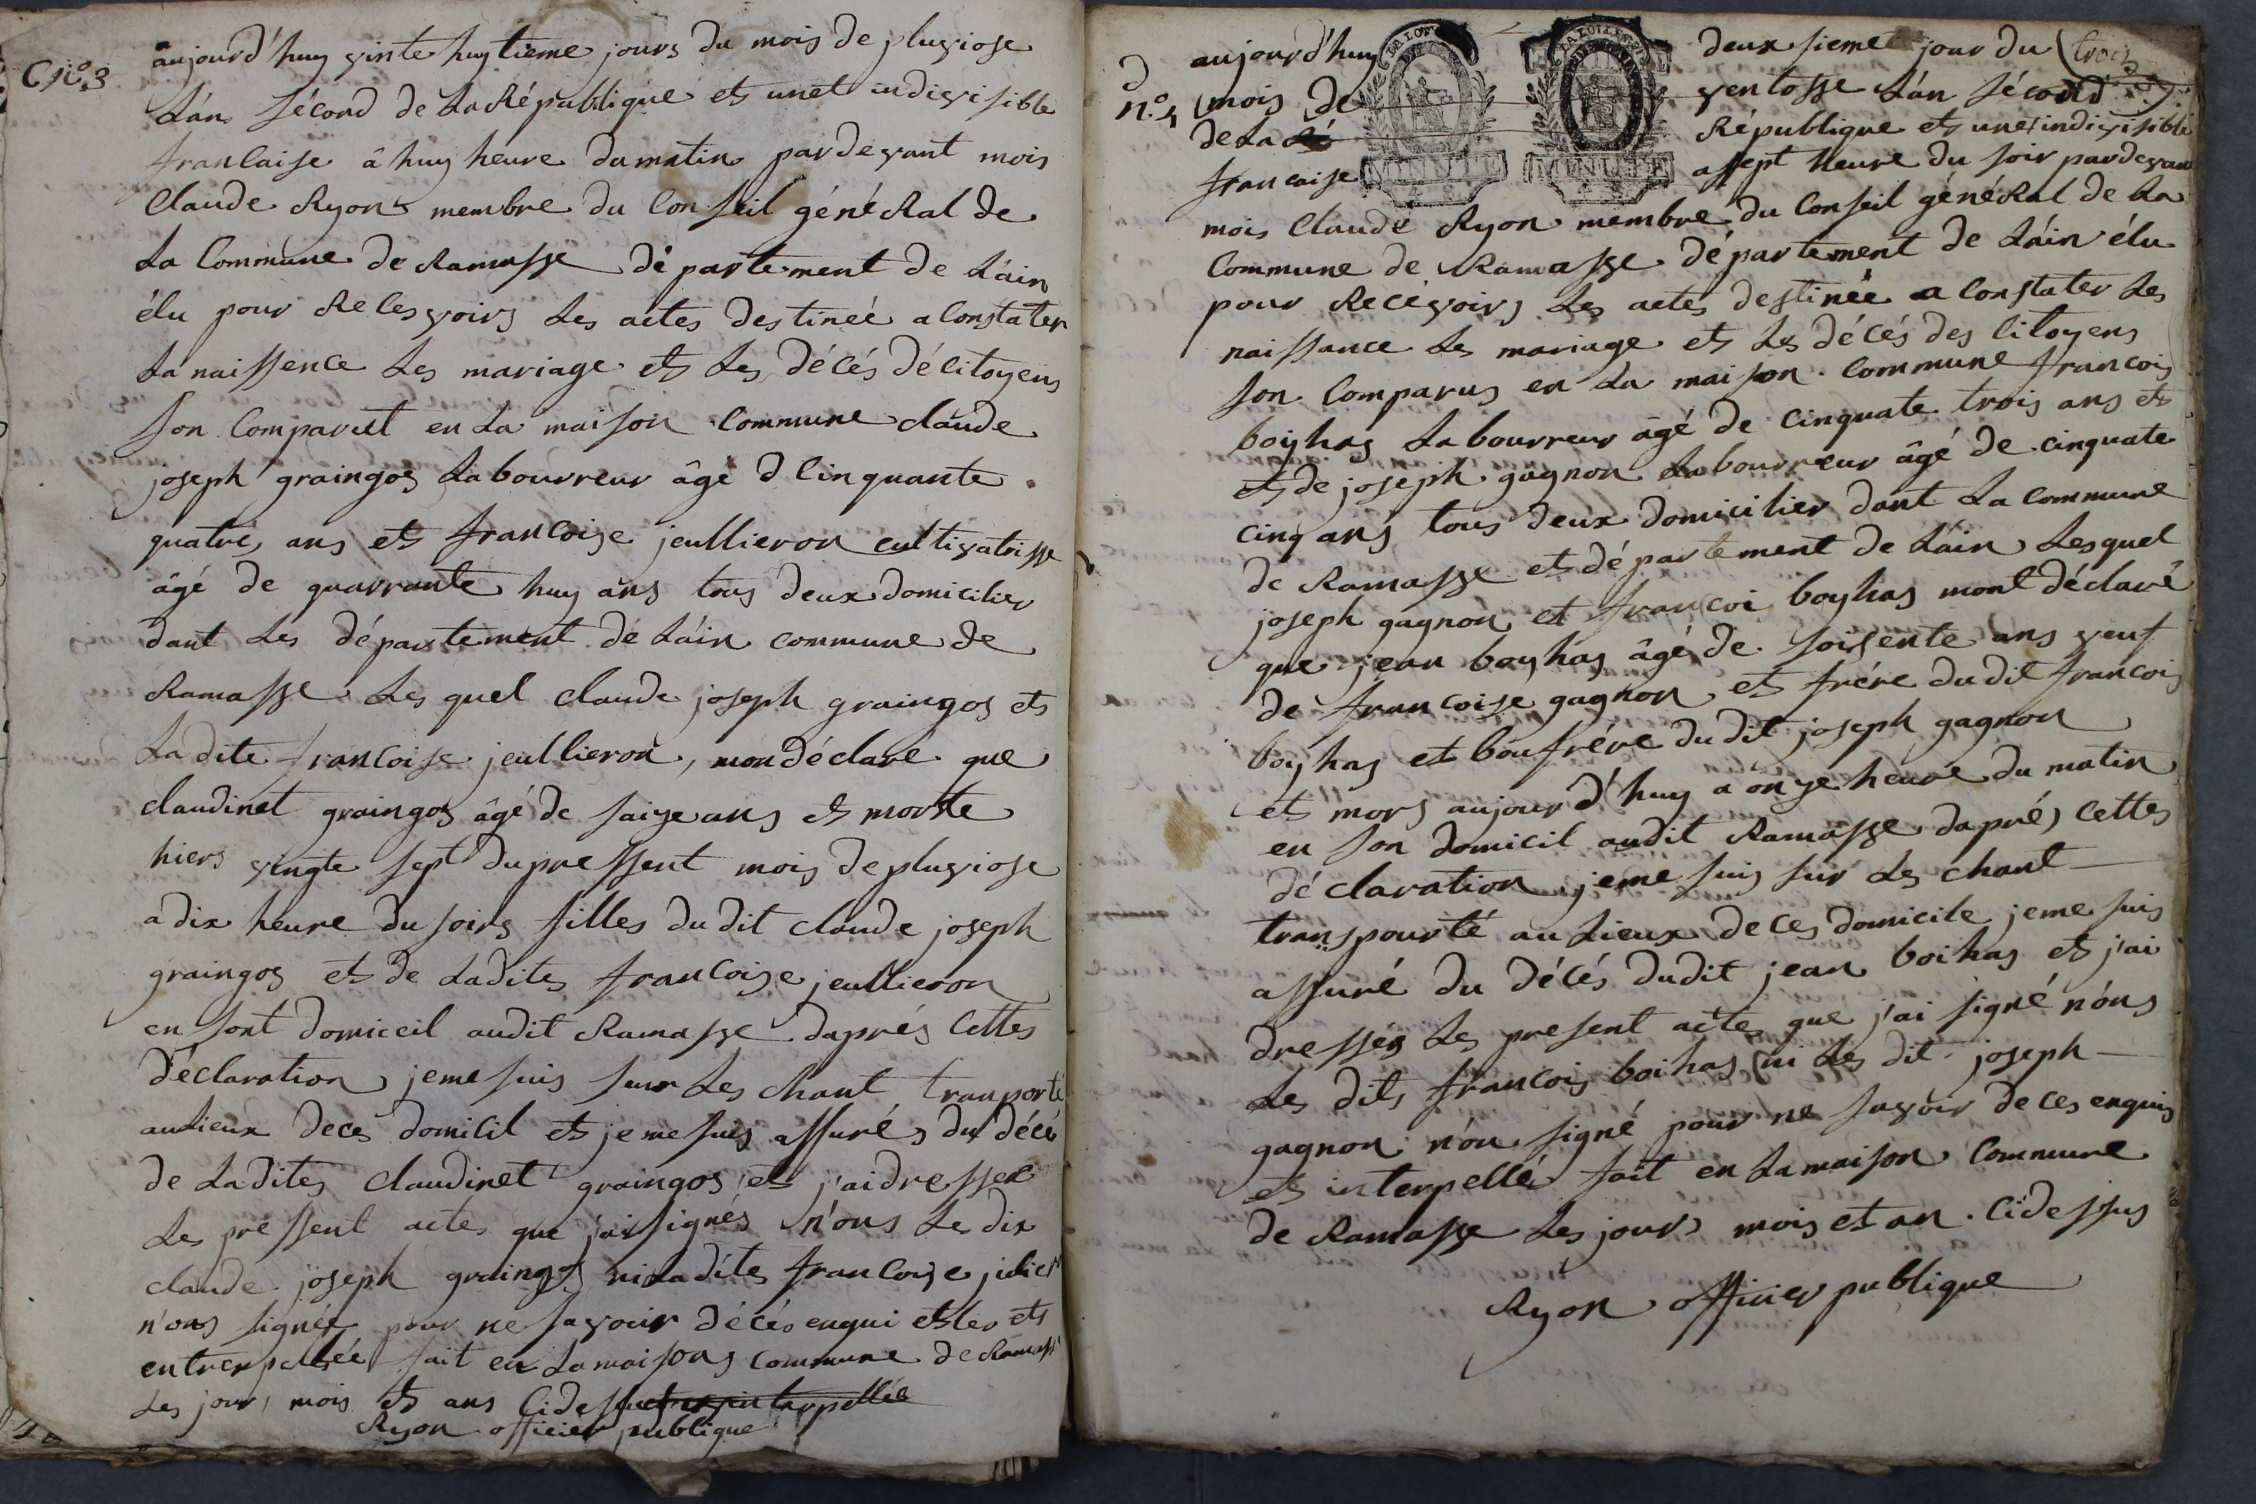 C n.º 3
aujourd'huy vinte huytieme jours du mois de pluviose
L'an sécond de La République et unet indivisible
francaise â huy heure du matin pardevant mois
Claude Ryon membre du Conseil généRal de
La Commune de Ramasse département de L'áin
élu pour Recesvoirs Les actes destinéé a Constater
La naissence Les mariage et Les décés dé citoyens
son Comparut en La maison Commune claude
joseph graingos Labourreur âgé d Cinquante
quatre ans et francoise jeullieron cultivatrisse
âgé de quarrante huy ans tous deux domicilier
dant Les département de L'áin commune de
Ramasse Les quel claude joseph graingos et
La dite francoise jeullieron, mon déclaré que
claudinet graingos âgé de saize ans et morte
hiers vingte sept du pressent mois de pluviose
a dix heure du soirs filles du dit claude joseph
graingos et de Ladites francoise jeullieron
en sont domiceil audit Ramasse daprés Cettes
déclaration, jeme suis sur Les chant tranporté
au Lieux deces domicil et je me suis assurés du décé
de Ladites claudinet graingos et j'ai dresser
Les pressent actes que j'ai signés n'ons Le dix
claude joseph graingos ni Ladites francoise julier
n'ons signéé pour ne savoir décés enqui estes et
entrerpelléé fait en La maisons commune de Ramass
Les jour, mois et ans Cidessus interpellée
Ryon officier publique
d
n.º 4
aujourd'huy deux sieme jour du trois
mois de ventosse L'án sécond
de La Ré République et une indivisible
francaise assept heure du soir pardevan
mois Claude Ryon membre du Conseil généRal de La
Commune de Ramasse département de L'áin élu
pour Recevoirs Les actes destinéé a Constater Les
naissance Les mariage et Les décés des Citoyens
son Comparus en La maison Commune francois
boyhas Labourreur âgé de cinquate trois ans et
et de joseph gagnon Labourreur âgé de cinquate
cinq ans tous deux domicilier dant La commune
de Ramasse et département de L'áin Lesquel
joseph gagnon et francoi boyhas mont déclaré
que jean boyhas âgé de soisente ans veuf
de francoise gagnon et frére dudit francois
boyhas et boufrére dudit joseph gagnon
et mors aujourd'huy a onze heure du matin
en son domicil audit Ramasse daprés cettes
déclaration jeme suis sur Les chant
transpourté au Lieux deces domicile jeme suis
assuré du décés dudit jean boihas et j'ai
dressés Les present acte que j'ai signé n'ons
Les dits francois boihas ni Les dit joseph
gagnon n'on signé pour ne savoir deces enquis
et interpellé fait en La maison Commune
de Ramasse Les jour mois et an Cidessus
Ryon officier publique
LA LOI
MINUTE
LA LOI LE ROI
MINUTE